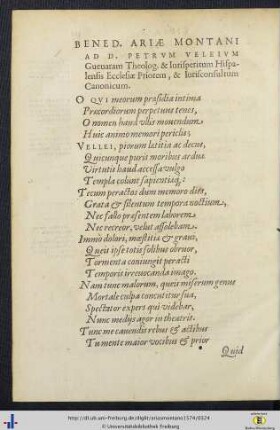 BENED. ARIÆ MONTANI
AD D. PETRVM VELEIVM
Gueuaram Theolog. & Iurisperitum Hispa-
lensis Ecclesiæ Priorem, & Iurisconsultum
Canonicum.
O QVI meorum præsidia intima
Præcordiorum perpetuo tenes,
O nomen haud vllis mouendum
Huic animo memori periclis;
VELLEI, piorum lætitia ac decus,
Quicunque puris moribus arduæ
Virtutis haud accessa vulgo
Templa colunt sapientiæq;:
Tecum peractos dum memoro dies,
Grata & silentum tempora noctium,
Nec fallo præsentem laborem
Nec recreor, velut assolebam.
Immò dolori, mæstitiæ & graui,
Queis ipse totis solibus obruor,
Tormenta coniungit peracti
Temporis irreuocanda imago.
Nam tunc malorum, queis miserum genus
Mortale culpa concutitur sua,
Spectator expers qui videbar,
Nunc medijs agor in theatris.
Tunc me canendi rebus & actibus
Tu mente maior vocibus & prior
Quid
http://dl.ub.uni-freiburg.de/diglit/ariasmontano1574/0324
© Universitätsbibliothek Freiburg